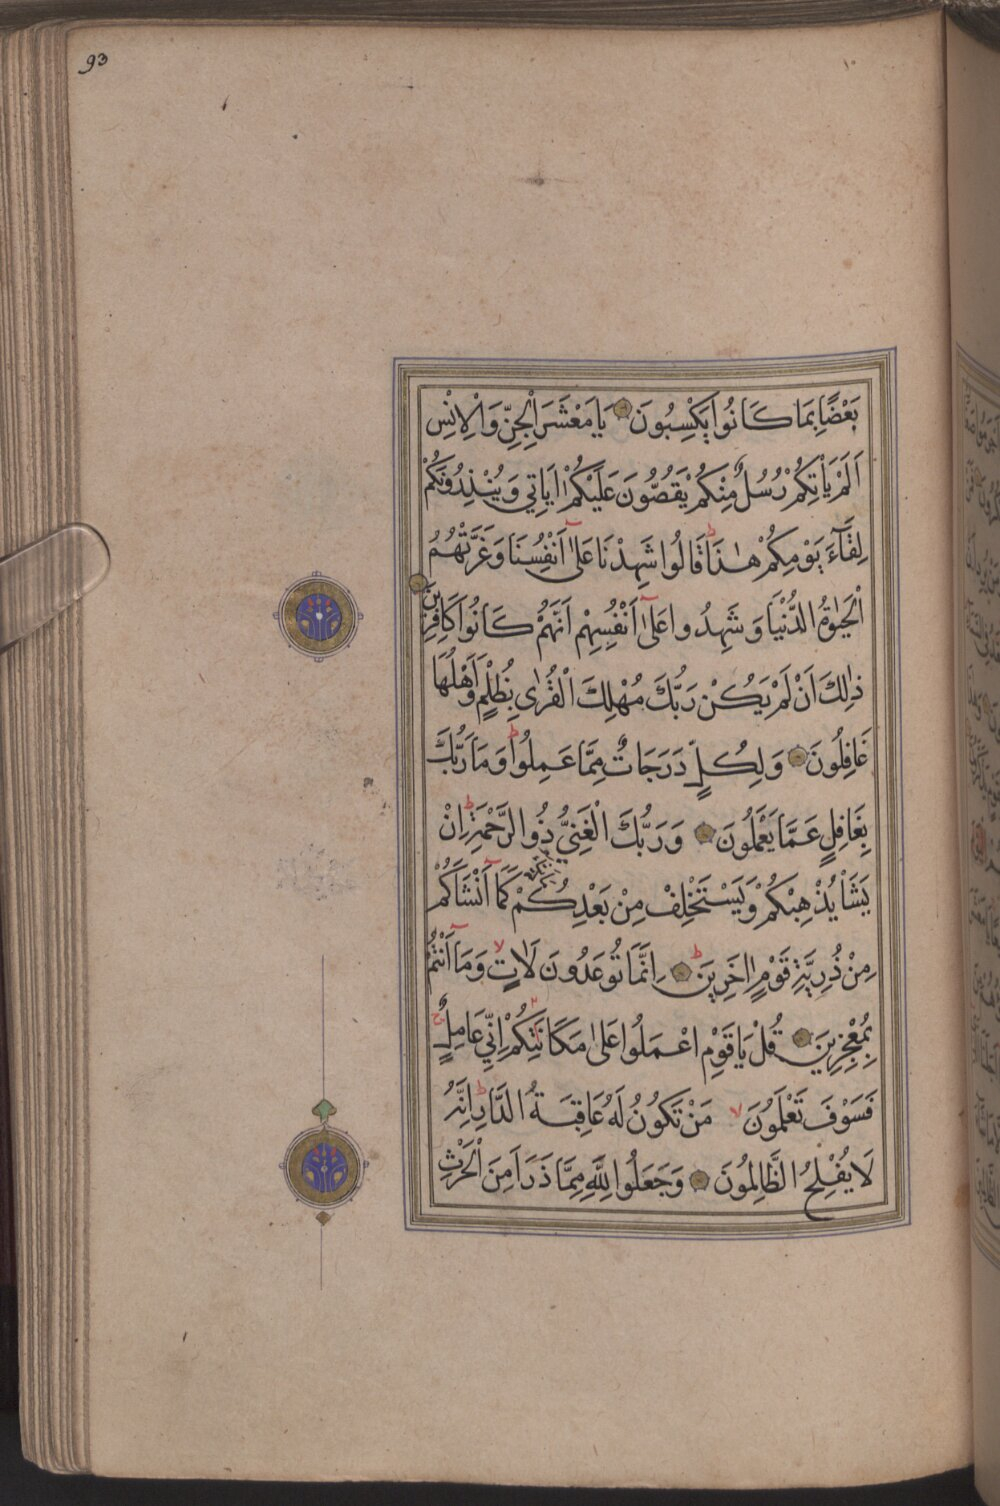 93
١٠
بَعْضًا بِمَا كَانُوا يَكْسِبُونَ يَا مَعْشَرَ الْجِنِّ وَالْاِنْسِ
اَلَمْ يَأْتِكُمْ رُسُلٌ مِنْكُمْ يَقُصُّونَ عَلَيْكُمْ اٰيَاتِي وَيُنْذِرُونَكُمْ
لِقَآءَ يَوْمِكُمْ هٰذَا ط قَالُوا شَهِدْنَا عَلٰٓى اَنْفُسِنَا وَغَرَّتْهُمُ
الْحَيٰوةُ الدُّنْيَا وَشَهِدُوا عَلٰٓى اَنْفُسِهِمْ اَنَّهُمْ كَانُوا كَافِرِينَ
ذٰلِكَ اَنْ لَمْ يَكُنْ رَبُّكَ مُهْلِكَ الْقُرٰى بِظُلْمٍ وَاَهْلُهَا
غَافِلُونَ وَلِكُلٍّ دَرَجَاتٌ مِمَّا عَمِلُوا ط وَمَا رَبُّكَ
بِغَافِلٍ عَمَّا يَعْمَلُونَ وَرَبُّكَ الْغَنِيُّ ذُو الرَّحْمَةِ ط اِنْ
يَشَأْ يُذْهِبْكُمْ وَيَسْتَخْلِفْ مِنْ بَعْدِكُمْ كَمَآ اَنْشَاَكُمْ
مِنْ ذُرِّيَّةِ قَوْمٍ اٰخَرِينَ ط اِنَّمَا تُوعَدُونَ لَاٰتٍ لا وَمَآ اَنْتُمْ
بِمُعْجِزِينَ قُلْ يَا قَوْمِ اعْمَلُوا عَلٰى مَكَانَتِكُمْ اِنِّي عَامِلٌ ج
فَسَوْفَ تَعْلَمُونَ لا مَنْ تَكُونُ لَهُ عَاقِبَةُ الدَّارِ ط اِنَّهُ
لَا يُفْلِحُ الظَّالِمُونَ وَجَعَلُوا لِلّٰهِ مِمَّا ذَرَاَ مِنَ الْحَرْثِ